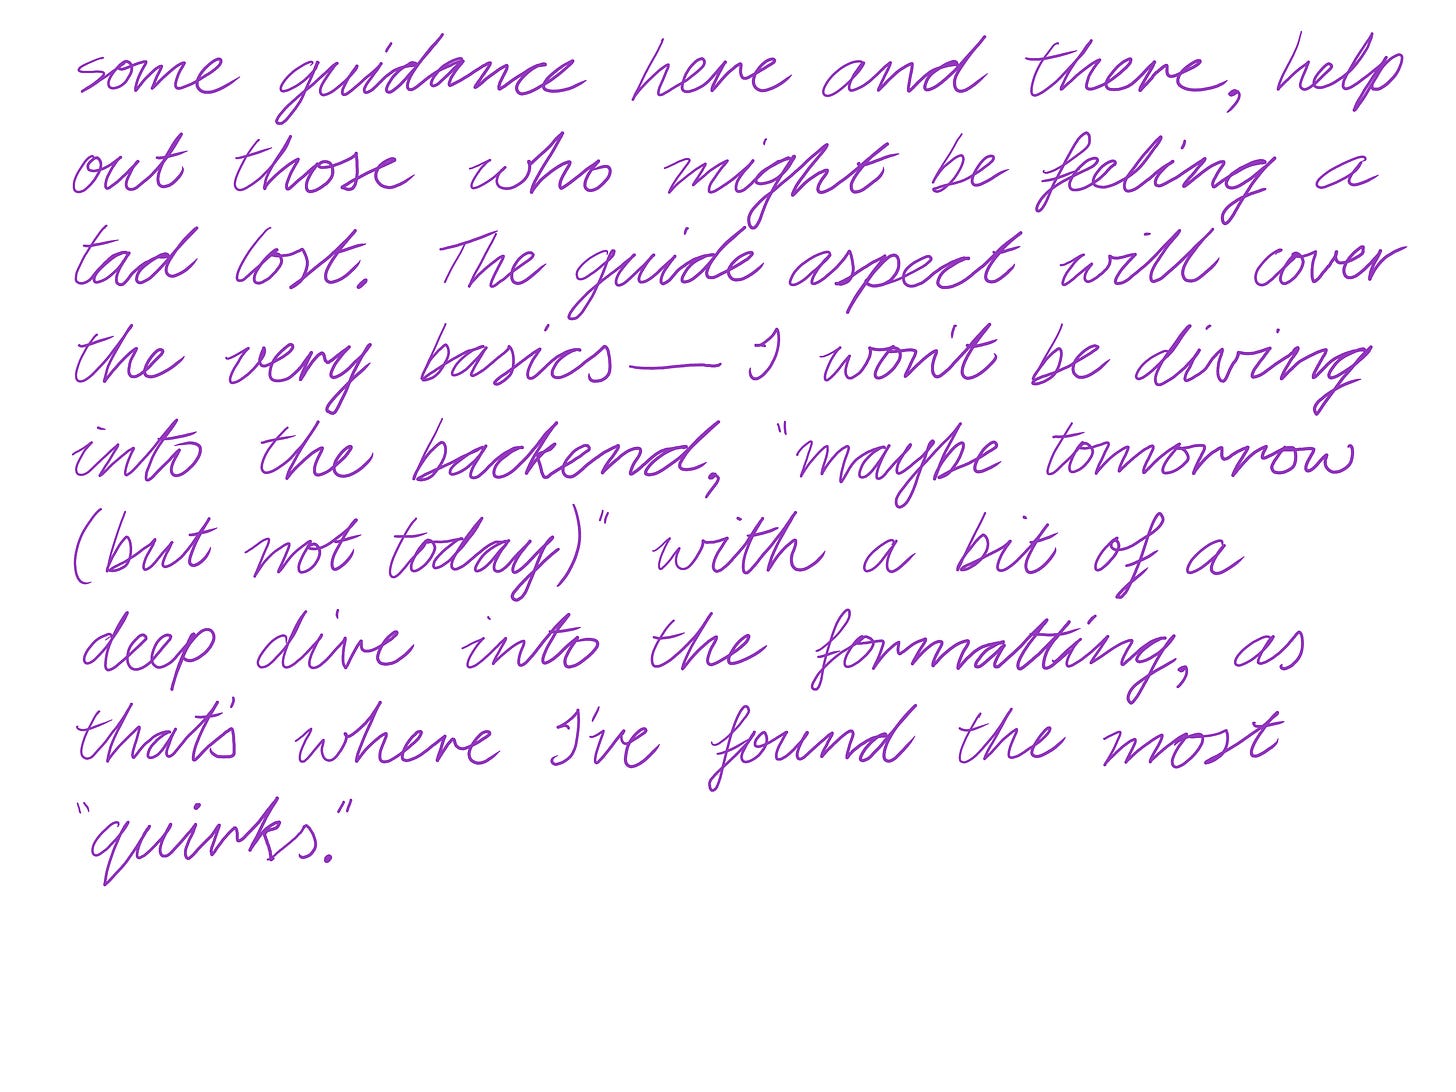 some guidance here and there, help
out those who might be feeling a
tad lost. The guide aspect will cover
the very basics — I won't be diving
into the backend, "maybe tomorrow
(but not today)" with a bit of a
deep dive into the formatting, as
that's where I've found the most
"quirks."